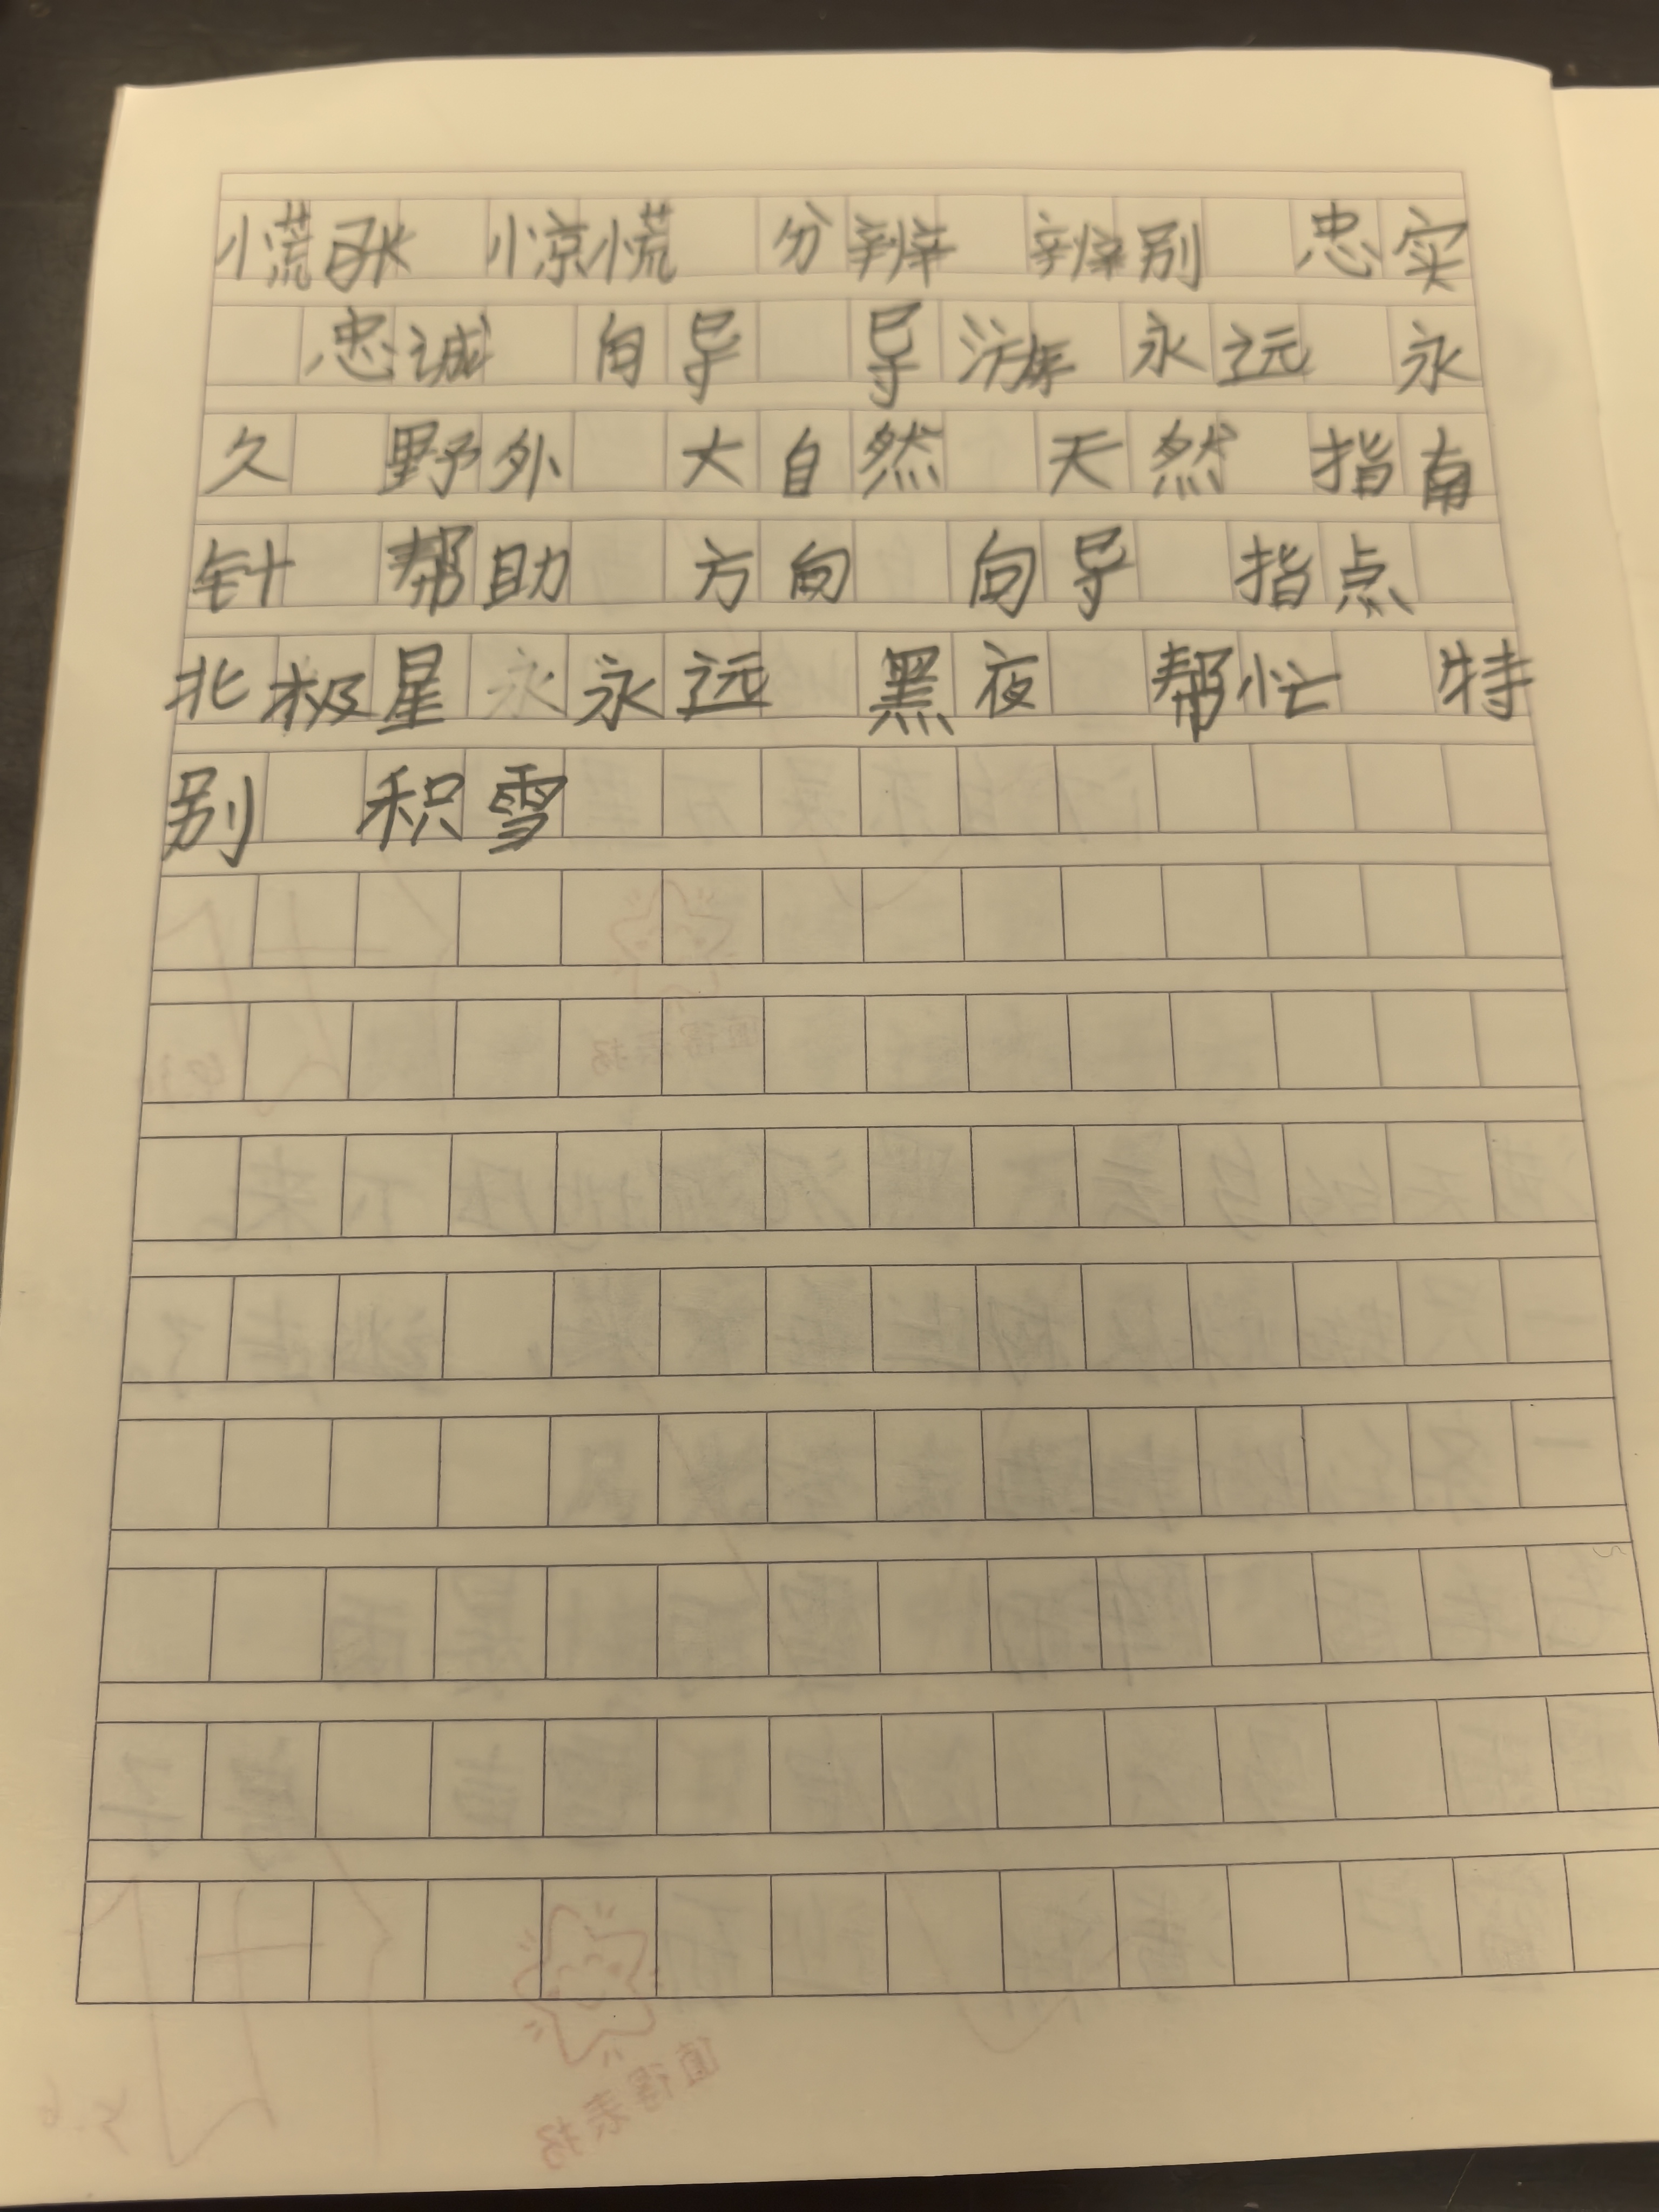 慌张 惊慌 分辨 辨别 忠实
忠诚 向导 导游 永远 永
久 野外 大自然 天然 指南
针 帮助 方向 向导 指点
北极星 永永远 黑夜 帮忙 特
别 积雪
值得表扬
值得表扬